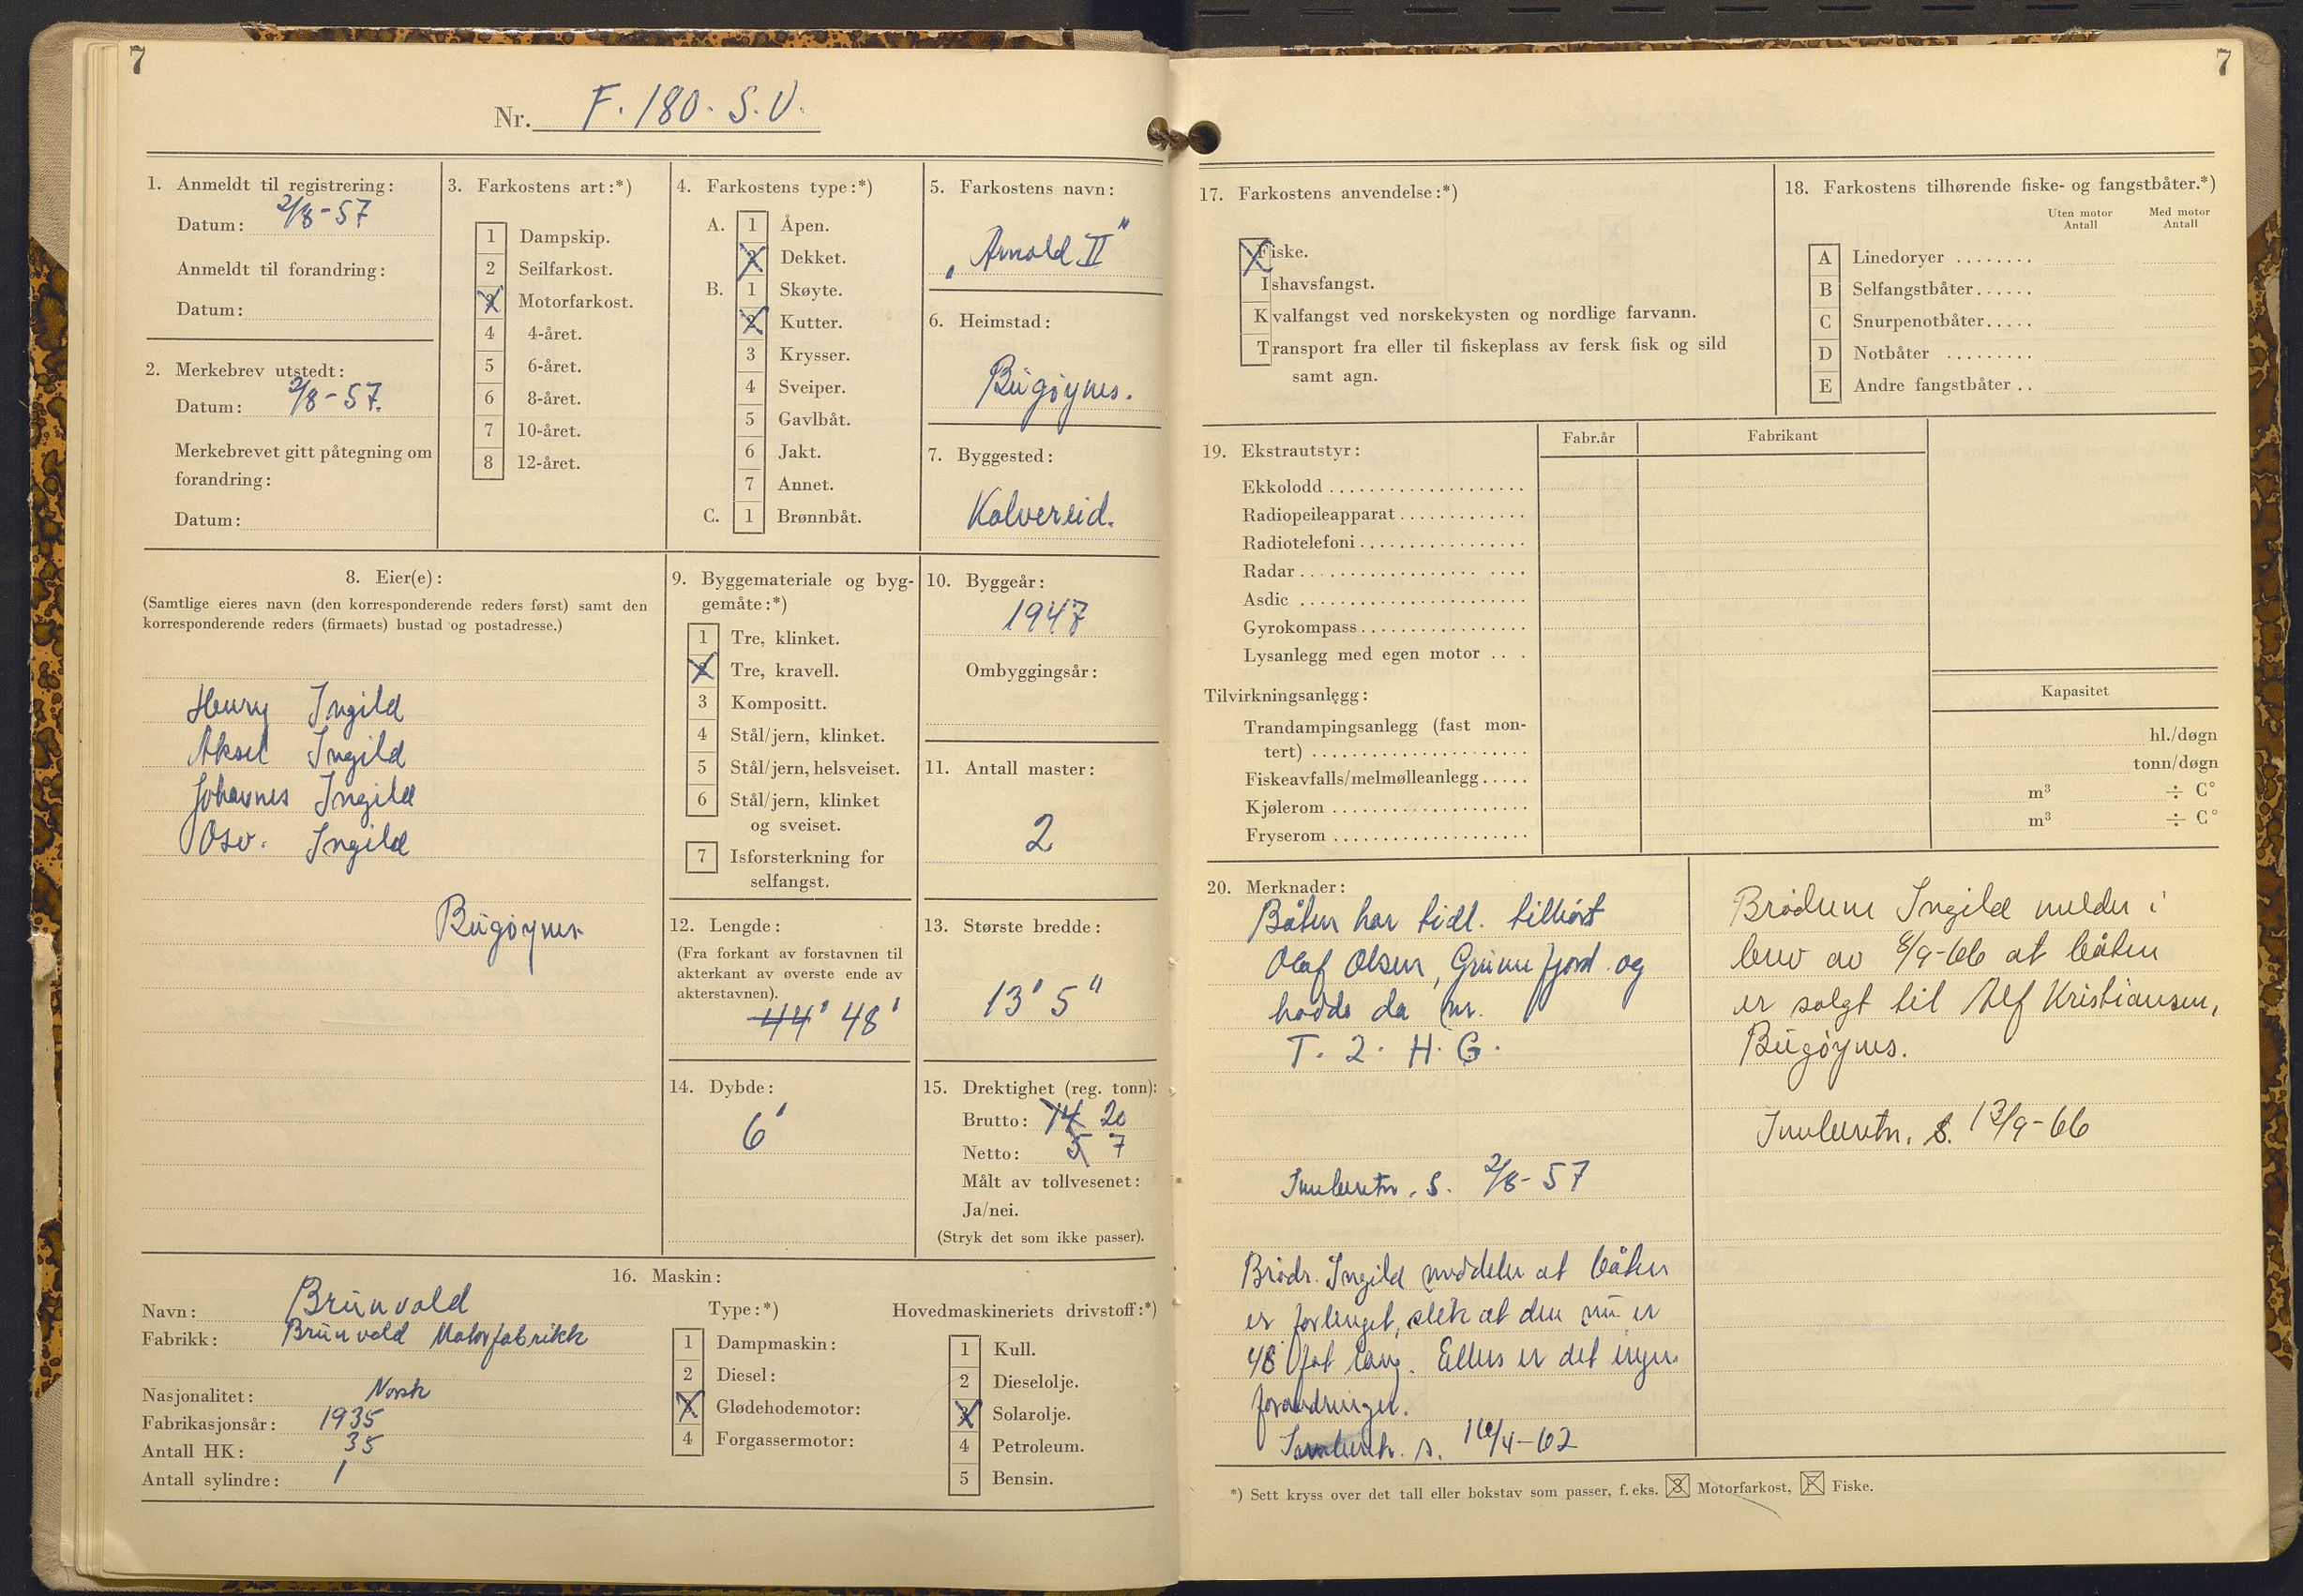 7
Nr. F. 180. S.V.
1. Anmeldt til registrering:
Datum: 2/8-57
Anmeldt til forandring:
Datum:
2. Merkebrev utstedt:
Datum: 2/8-57.
Merkebrevet gitt påtegning om
forandring:
Datum:
3. Farkostens art:*)
1 Dampskip.
2 Seilfarkost.
3 Motorfarkost.
4 4-året.
5 6-året.
6 8-året.
7 10-året.
8 12-året.
4. Farkostens type:*)
A. 1 Åpen.
2 Dekket.
B. 1 Skøyte.
2 Kutter.
3 Krysser.
4 Sveiper.
5 Gavlbåt.
6 Jakt.
7 Annet.
C. 1 Brønnbåt.
5. Farkostens navn:
„Arnold II"
6. Heimstad:
Bugøynes.
7. Byggested:
Kolvereid.
8. Eier(e):
(Samtlige eieres navn (den korresponderende reders først) samt den
korresponderende reders (firmaets) bustad og postadresse.)
Henry Ingild
Aksel Ingild
Johannes Ingild
Osv. Ingild
Bugøynes
9. Byggemateriale og byg-
gemåte:*)
1 Tre, klinket.
2 Tre, kravell.
3 Kompositt.
4 Stål/jern, klinket.
5 Stål/jern, helsveiset.
6 Stål/jern, klinket
og sveiset.
7 Isforsterkning for
selfangst.
10. Byggeår:
1947
Ombyggingsår:
11. Antall master:
2
12. Lengde:
(Fra forkant av forstavnen til
akterkant av øverste ende av
akterstavnen).
44' 48'
13. Største bredde:
13' 5"
14. Dybde:
6'
15. Drektighet (reg. tonn):
Brutto: 14 20
Netto: 5 7
Målt av tollvesenet:
Ja/nei.
(Stryk det som ikke passer).
16. Maskin:
Navn: Brunvold
Fabrikk: Brunvold Motorfabrikk
Nasjonalitet: Norsk
Fabrikasjonsår: 1935
Antall HK: 35
Antall sylindre: 1
Type:*)
1 Dampmaskin:
2 Diesel:
3 Glødehodemotor:
4 Forgassermotor:
Hovedmaskineriets drivstoff:*)
1 Kull.
2 Dieselolje.
3 Solarolje.
4 Petroleum.
5 Bensin.
7
17. Farkostens anvendelse:*)
Fiske.
Ishavsfangst.
Kvalfangst ved norskekysten og nordlige farvann.
Transport fra eller til fiskeplass av fersk fisk og sild
samt agn.
18. Farkostens tilhørende fiske- og fangstbåter.*)
Uten motor Antall Med motor Antall
A Linedoryer
B Selfangstbåter
C Snurpenotbåter
D Notbåter
E Andre fangstbåter
19. Ekstrautstyr: Fabr.år Fabrikant
Ekkolodd
Radiopeileapparat
Radiotelefoni
Radar
Asdic
Gyrokompass
Lysanlegg med egen motor
Tilvirkningsanlegg: Kapasitet
Trandampingsanlegg (fast mon-
tert) hl./døgn
Fiskeavfalls/melmølleanlegg tonn/døgn
Kjølerom m³ ÷ C°
Fryserom m³ ÷ C°
20. Merknader:
Båten har tidl. tilhørt
Olaf Olsen, Grunnfjord og
hadde da nr.
T. 2. H. G.
Innberetn. s. 2/8-57
Brødr. Ingild meddeler at båten
er forlenget, slik at den nu er
48 fot lang. Ellers er det ingen
forandringer.
Innberetn. s. 16/4-62
Brødrene Ingild melder i
brev av 8/9-66 at båten
er solgt til Alf Kristiansen,
Bugøynes.
Innberetn. s. 13/9-66
*) Sett kryss over det tall eller bokstav som passer, f. eks. 3 Motorfarkost, F Fiske.